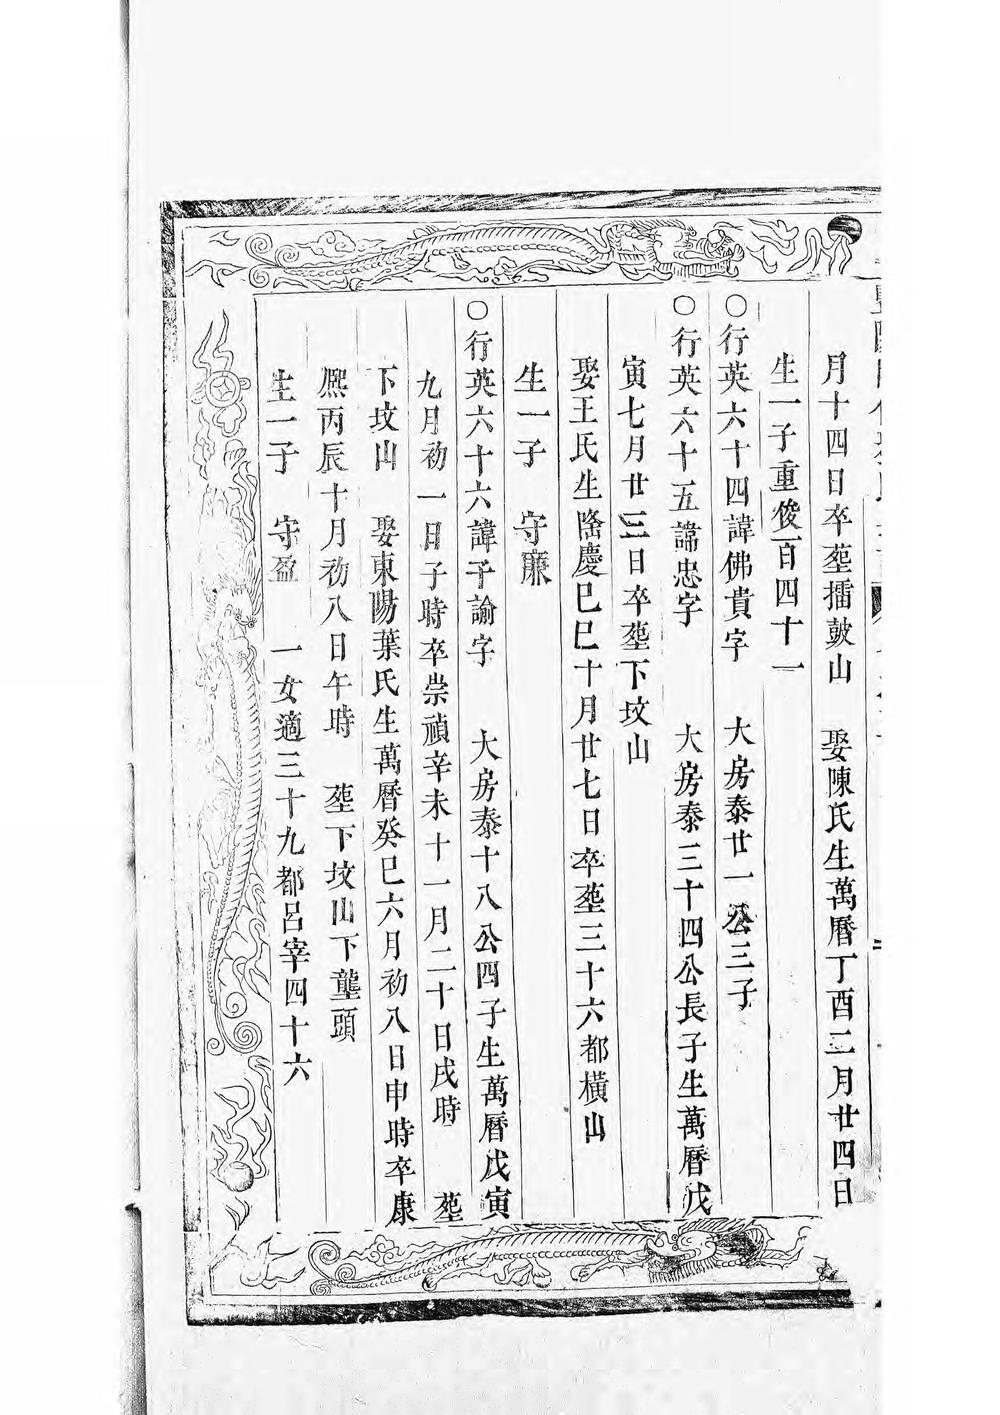 月十四日卒塟擂皷山　娶陳氏生萬曆丁酉二月廿四日
生一子重俊百四十一
○行英六十四諱佛貴字　大房泰廿一公三子
○行英六十五諱忠字　大房泰三十四公長子生萬曆戊
寅七月廿三日卒塟下坟山
娶王氏生隆慶巳巳十月廿七日卒塟三十六都橫山
生一子　守廉
○行英六十六諱子諭字　大房泰十八公四子生萬曆戊寅
九月初一日子時卒崇禎辛未十一月二十日戌時　塟
下坟山　娶東陽葉氏生萬曆癸巳六月初八日申時卒康
熈丙辰十月初八日午時　塟下坟山下壟頭
生一子　守盈　一女適三十九都呂宰四十六